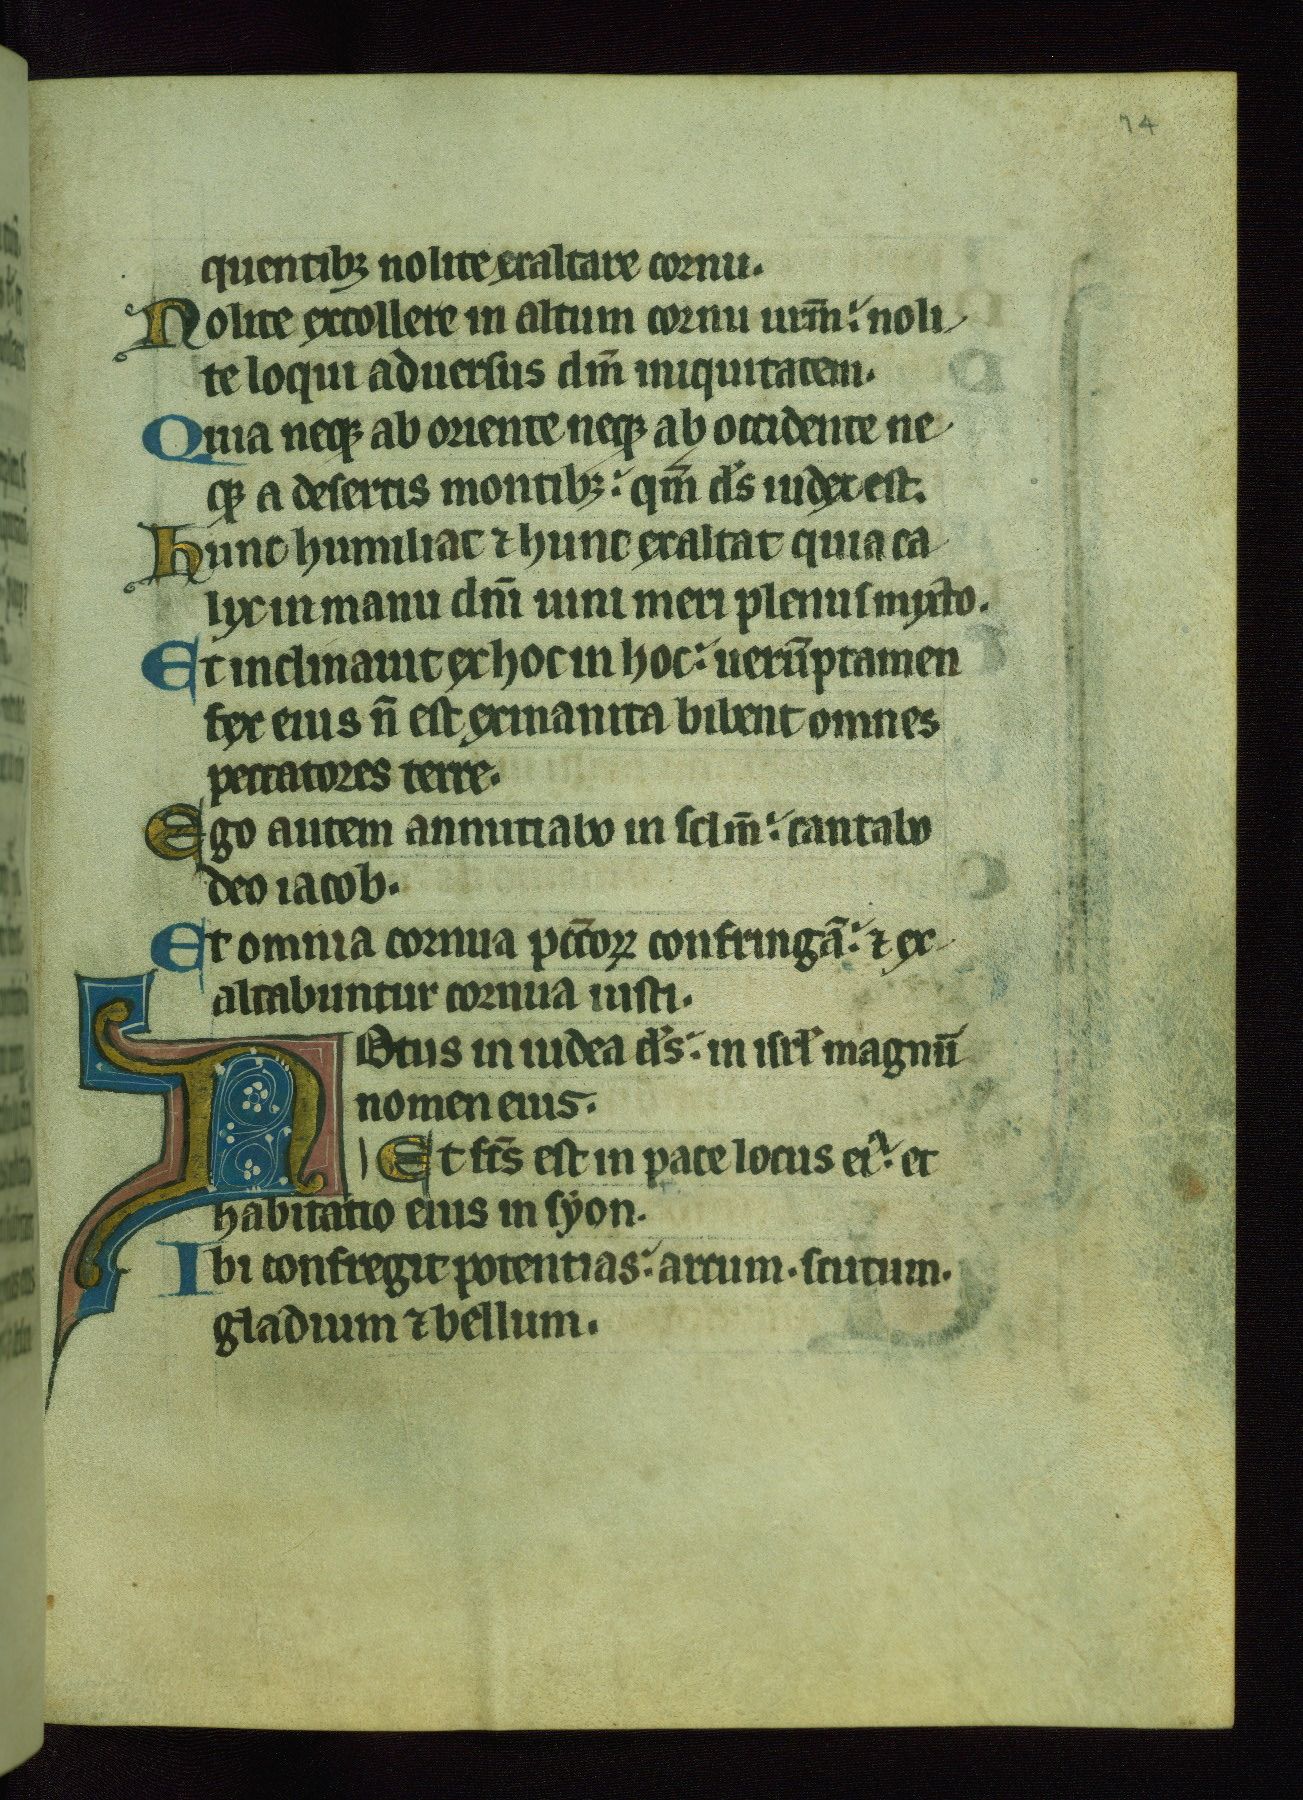 74
quentibꝫ nolite exaltare cornu.
Nolite extollere in altum cornu urm̄: noli
te loqui aduersus dm̄ iniquitatem.
Quia neqꝫ ab oriente neqꝫ ab occidente ne
qꝫ a desertis montibꝫ: qm̄ ds̄ iudex est.
hunc humiliat ⁊ hunc exaltat quia ca
lyx in manu dn̄i uini meri plenus myxto.
Et inclinauit ex hoc in hoc: uerūptamen
fex eius n̄ est exinanita bibent omnes
peccatores terre.
Ego autem annutiabo in sclm̄: cantabo
deo iacob.
Et omnia cornua pcc̄oꝝ confringā: ⁊ ex
altabuntur cornua iusti.
NOtus in iudea ds̄: in isrl̄ magnū
nomen eius.
Et fcs̄ est in pace locus eiꝰ: et
habitatio eius in syon.
Ibi confregit potentias: arcum. scutum.
gladium ⁊ bellum.